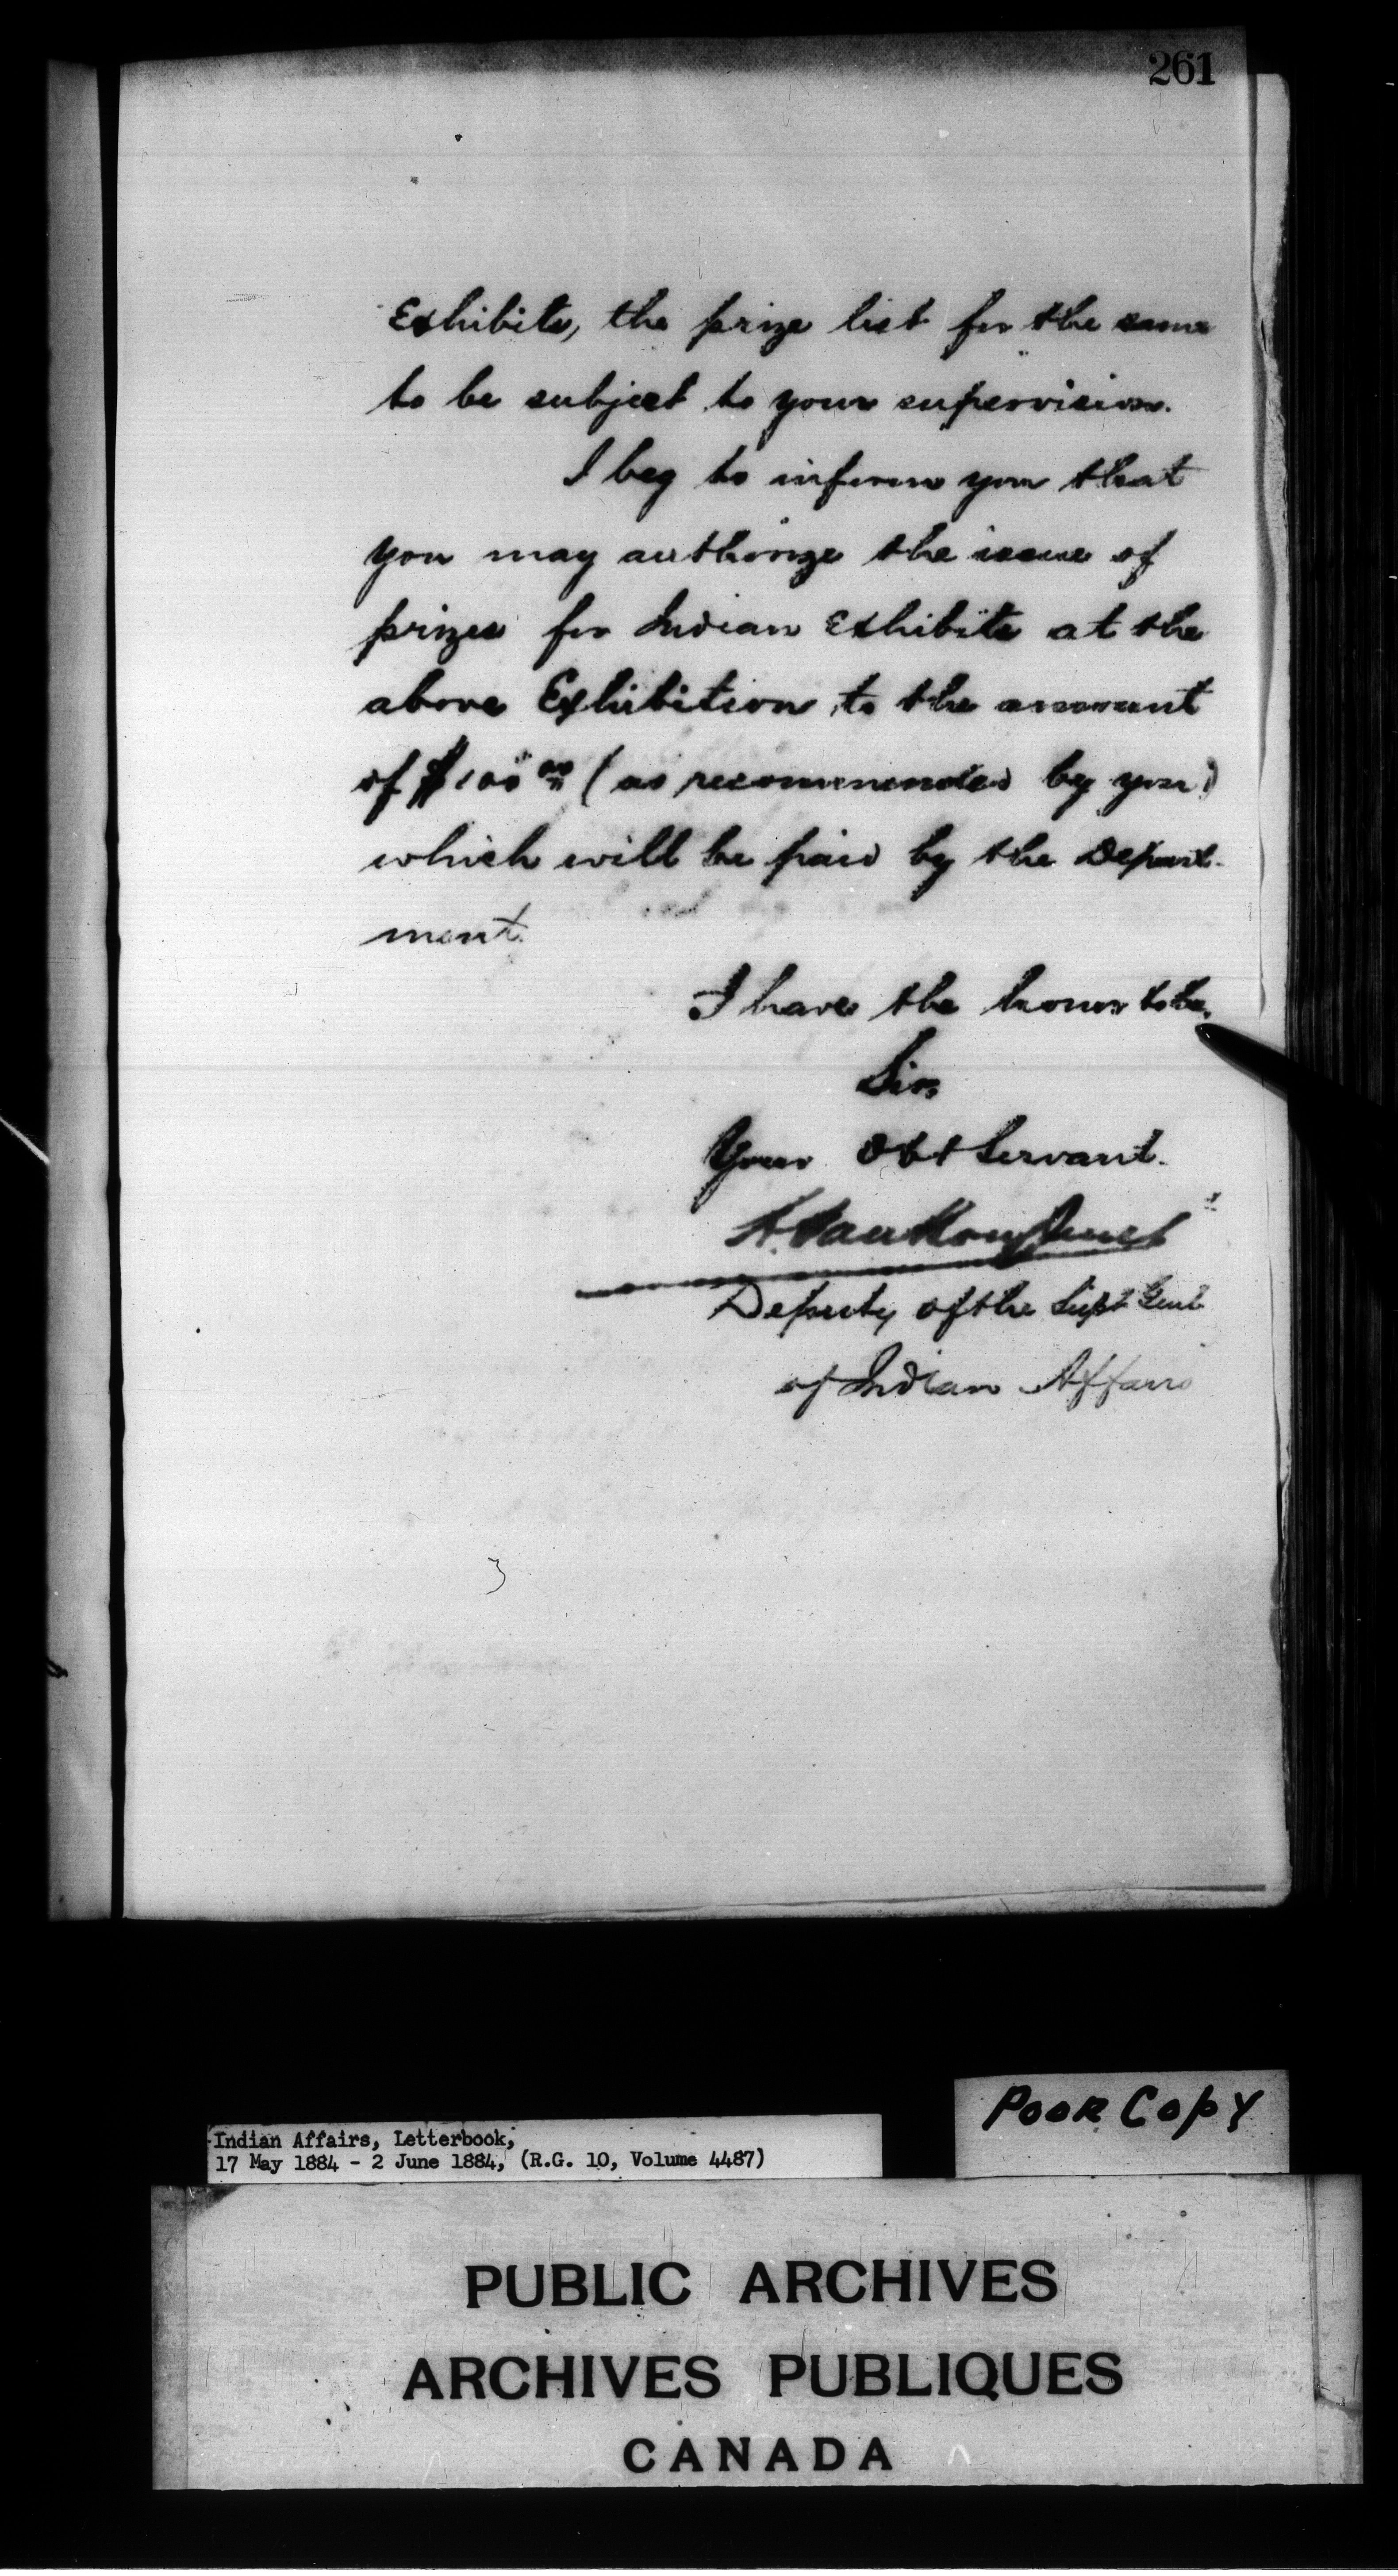 261
Exhibits, the prize list for the same
to be subject to your supervision.
I beg to inform you that
you may authorize the issue of
prizes for Indian Exhibits at the
above Exhibition to the amount
of $100 00 (as recommended by you)
which will be paid by the Depart-
ment.
I have the honor to be,
Sir,
Your Obt Servant.
L. VanKoughnet
Deputy of the Supt Genl
of Indian Affairs
POOR COPY
Indian Affairs, Letterbook,
17 May 1884 - 2 June 1884, (R.G. 10, Volume 4487)
PUBLIC ARCHIVES
ARCHIVES PUBLIQUES
CANADA